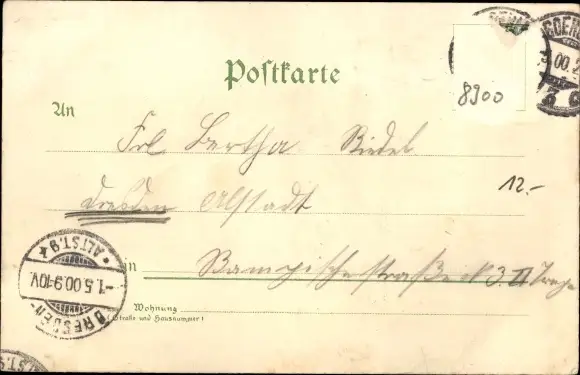 Postkarte
8900
An
Frl Bertha Riedel
12.-
Dresden Altstadt
in
3. II
Wohnung
(Straße und Hausnummer)
DRESDEN
-1.5.00.9-10V.
* ALTST. 9 *